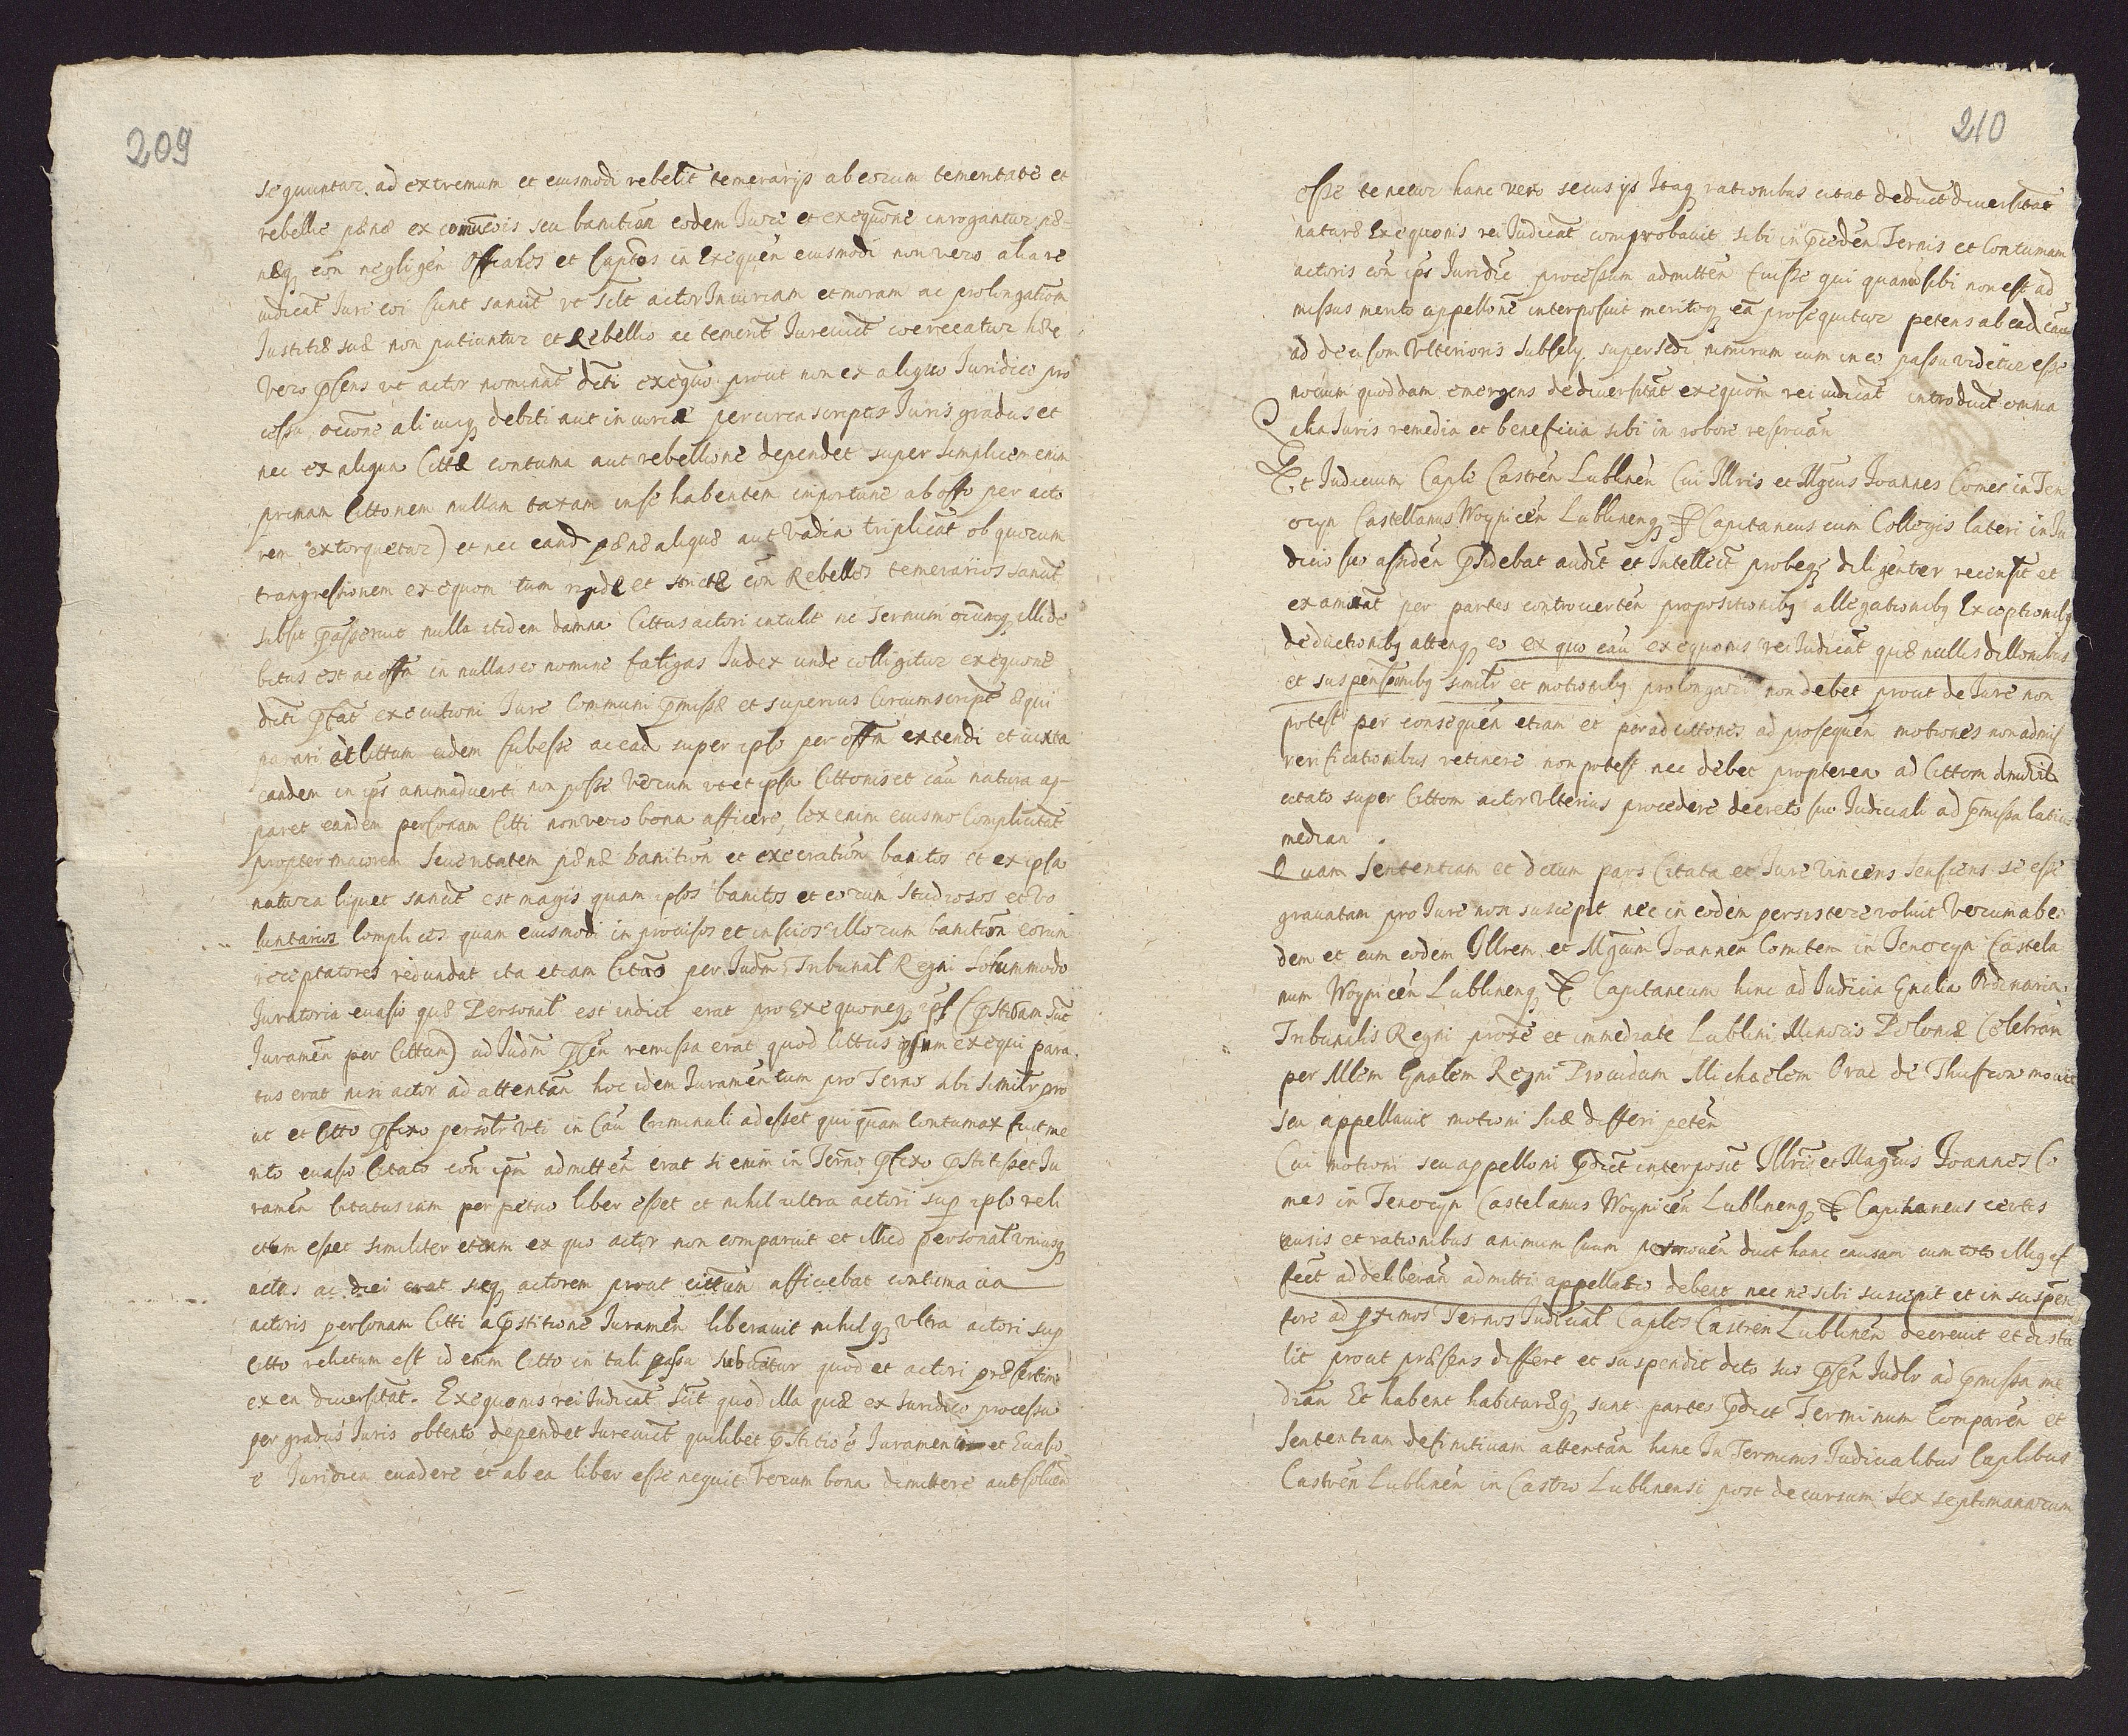 209
sequuntur. ad extremum et eiusmodi rebelit temerarijs ab eorum temeritate et
rebellie pænæ ex comuicois seu banition eodem Jure et exequone inrogantur pæ-
næq con negligen Officiales et Captos in Exequen eiusmodi non vero alia re
iudicat Jure coi sunt sancit ut scilt actor Iniuriam et moram ac prolongationem
Justitiæ suæ non patiuntur et Rebellio ac temerit Jurevict coerceatur hæc
vero psens ut actor nominat dicti exequo prout non ex aliquo Juridico pro
cessu, occone alicuiq debiti aut iniuriæ per circa scriptos Juris gradus et
nec ex aliqua Cittæ contuma aut rebellione dependet super simplicem enim
primam Cittonem nullam taxam in se habentem importune ab offo per acto
rem extorquetur) et nec eand pænæ aliquæ aut vadia triplicat ob quorum
trangressionem exequom tum rigidæ et strictæ con Rebelles temerarios sancit
subsit passeruit nulla itidem damna Cittus actori intulit ne Ternum ocumq illi de
bitus est ac offm in nullas eo nomine fatigas Judex unde colligitur exequone
dicti pstat executioni Jure Communi pmissæ et superius Circumscript æqui
parari ac Cittum eidem subesse ac ead super ipso per offm extendi et iuxta
eandem in ips animadverti non posse verum ut et ipsa Cittonis et cau natura ap-
paret eandem personam Citti non vero bona afficere, lex enim eiusmo Complicitat
propter maiorem seueritatem pænæ banition et execration banitos et ex ipsa
natura liquet sancit est magis quam ipsos banitos et eorum studiosos et vo
luntarios Complices quam eiusmodi improuisos et inscios illorum banition eorum
receptatores redundat ita etiam Citato per Judm Tribunal Regni Solummodo
Juratoria euasio quæ Personal est indict erat pro Exequoneq ips (pstitam suæ
Juramen per Cittum) ad Judm psen remissa erat quod Cittus ipsum exequi para
tus erat nisi actor ad attentan hoc idem Juramentum pro Terno sibi similr pro
ut et Citto pfixo persoltr uti in Cau Criminali adesset qui quam Contumax fuit me
rito euasio Citato con ipm admitten erat si enim in Terno pfixo pstitisset Ju
ramen Citatus iam perpetuo liber esset et nihil ultra actori sup ipso reli
ctum esset similiter etiam ex quo actor non comparuit et illud personal uniusq
actus ac diei erat sicq actorem prout cittum afficiebat contumacia
actoris personam Citti a pstitione Juramen liberauit nihilq ultra actori sup
Citto relictum est id enim Citto in tali passu subuenitur quod et actori præsertim
ex ea diuersitat. Exequonis rei Judicat scilt quod illa quæ ex Juridico processu
per gradus Juris obtento dependet Jurevict quilibet pstitioe Juramenti et Euasio
e Juridica euadere et ab ea liber esse nequit verum bona dimittere aut soluen
210
esse tenetur hanc vero secus ijs Itaq rationibus citat deduct diuersitate
naturæ Exequonis rei Judicat comprobauit sibi in pceden Ternis et Contumam
actoris con ips Juridice processum admitten fuisse qui quam sibi non est ad
missus merito appellone interposuit meritoq ea prosequitur petens ab ead cau
ad decisom Ulterioris subselij supersedi nimirum cum in eo passu videtur esse
nouum quoddam emergens de diuersitat exequom rei iudicat introduct omnia
alia Juris remedia et beneficia sibi in robore reseruan
Et Judicium Caple Castren Lublinen Cui Illris et Mgcus Joannes Comes in Ten
ocyn Castellanus Woynicen Lublinenq & Capitaneus cum Collegis lateri in Ju
dicio suo assiden psidebat audit et Intellect probeq diligenter recensit et
examinat per partes controuerten propositionibq allegationibq Exceptionibq
deductionibq attenq eo ex quo cau exequonis rei Judicat quæ nullis dillonibus
et suspensionibq similr et motionibq prolongari non debet prout de Jure non
potest per consequen etiam et per ad cittones ad prosequen motiones non admis
verificationibus retinere non potest nec debet propterea ad Cittom
citato super Cittom actor Ulterius procedere decreto suo Judiciali ad pmissa latius
median.
Quam Sententiam et dctum pars Citata et Jure Vincens sensiens se esse
grauatam pro Jure non suscepit nec in eodem persistere voluit verum ab eo
dem et eum eodem Illrem et Mgcum Joannem Comitem in Tenocyn Castela
num Woynicen Lublinenq & Capitaneum hinc ad Judicia Gnalia Ordinaria
Tribunalis Regni proxe et immediate Lublini Minoris Poloniæ Celebran
per Mlem Gnalem Regni Prouidum Michaelem Brac de Thuscow mouit
seu appellauit motioni suæ differi peten
Cui motioni seu appelloni pdict interposit Illris et Magcus Joannes Co
mes in Tenocyn Castelanus Woynicen Lublinenq & Capitaneus certis
causis et rationibus animum suum permouen duct hanc causam cum toto illiq ef
fect ad deliberan admitti appellatio debeat nec ne sibi suscepit et in suspen
sore ad pximos Ternos Judicial Caples Castren Lublinen decreuit et distu
lit prout præsens differt et suspendit dcto suo psen Judlr ad pmissa me
dian Et habent habituræq sunt partes pdict Terminum Comparen et
Sententiam definitiuam attentan hinc In Terminis Judicialibus Caplibus
Castren Lublinen in Castro Lublinensi post decursum sex septimanarum